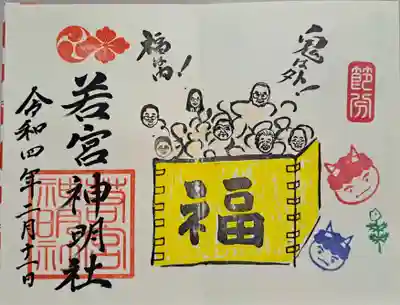 節分
鬼は外!
福は内!
福
若宮神明社
若宮
神明社
令和四年二月十一日